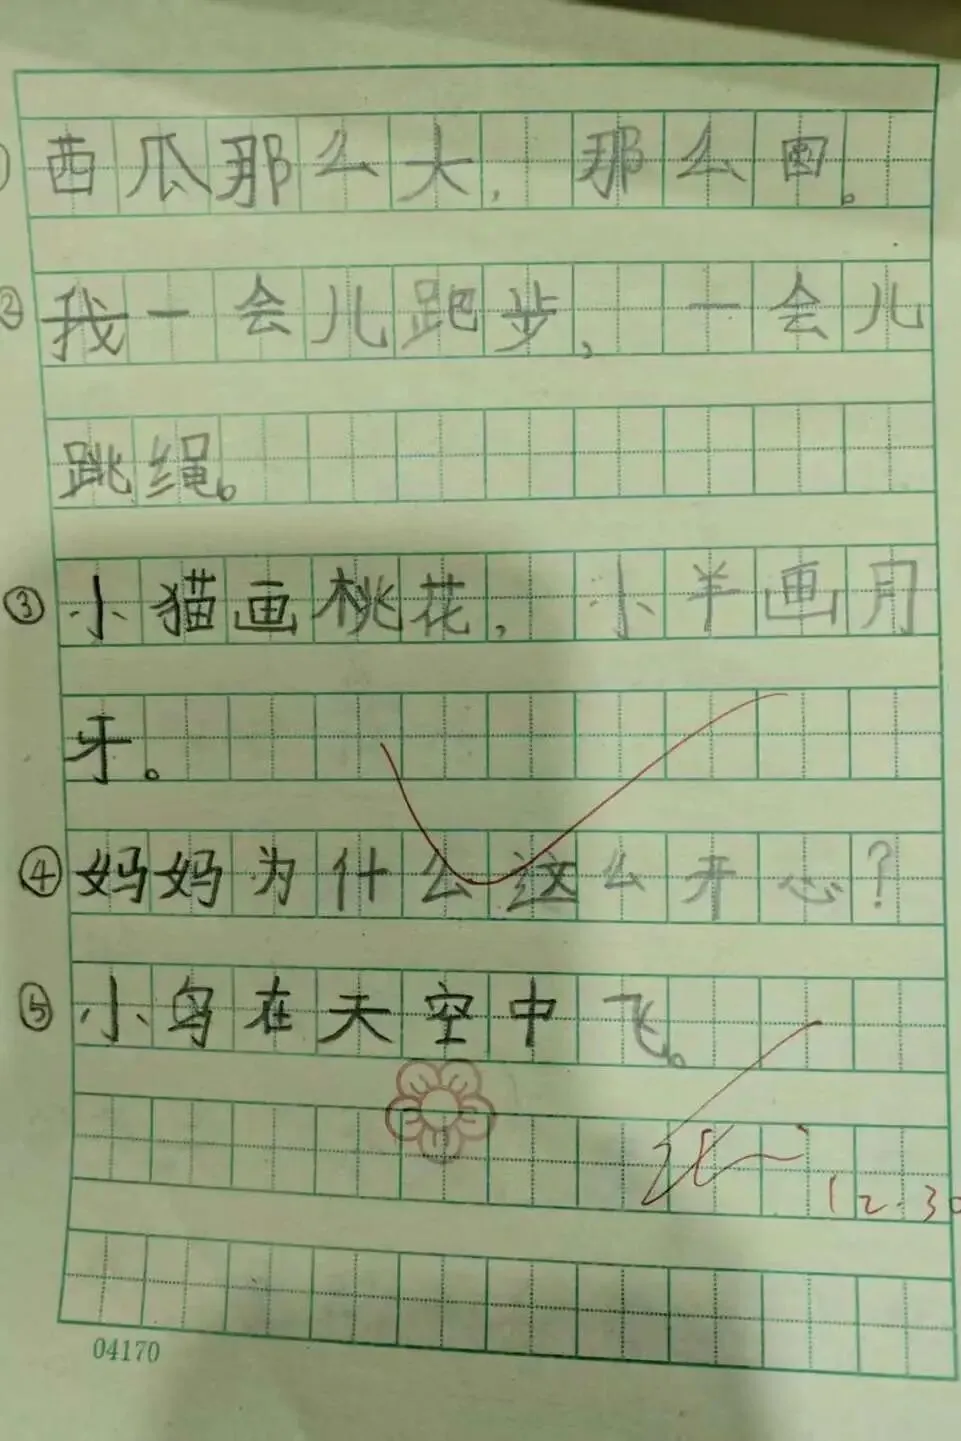 ① 西瓜那么大，那么圆。
② 我一会儿跑步，一会儿
跳绳。
③ 小猫画桃花，小羊画月
牙。
④ 妈妈为什么这么开心？
⑤ 小鸟在天空中飞。
12.30
04170